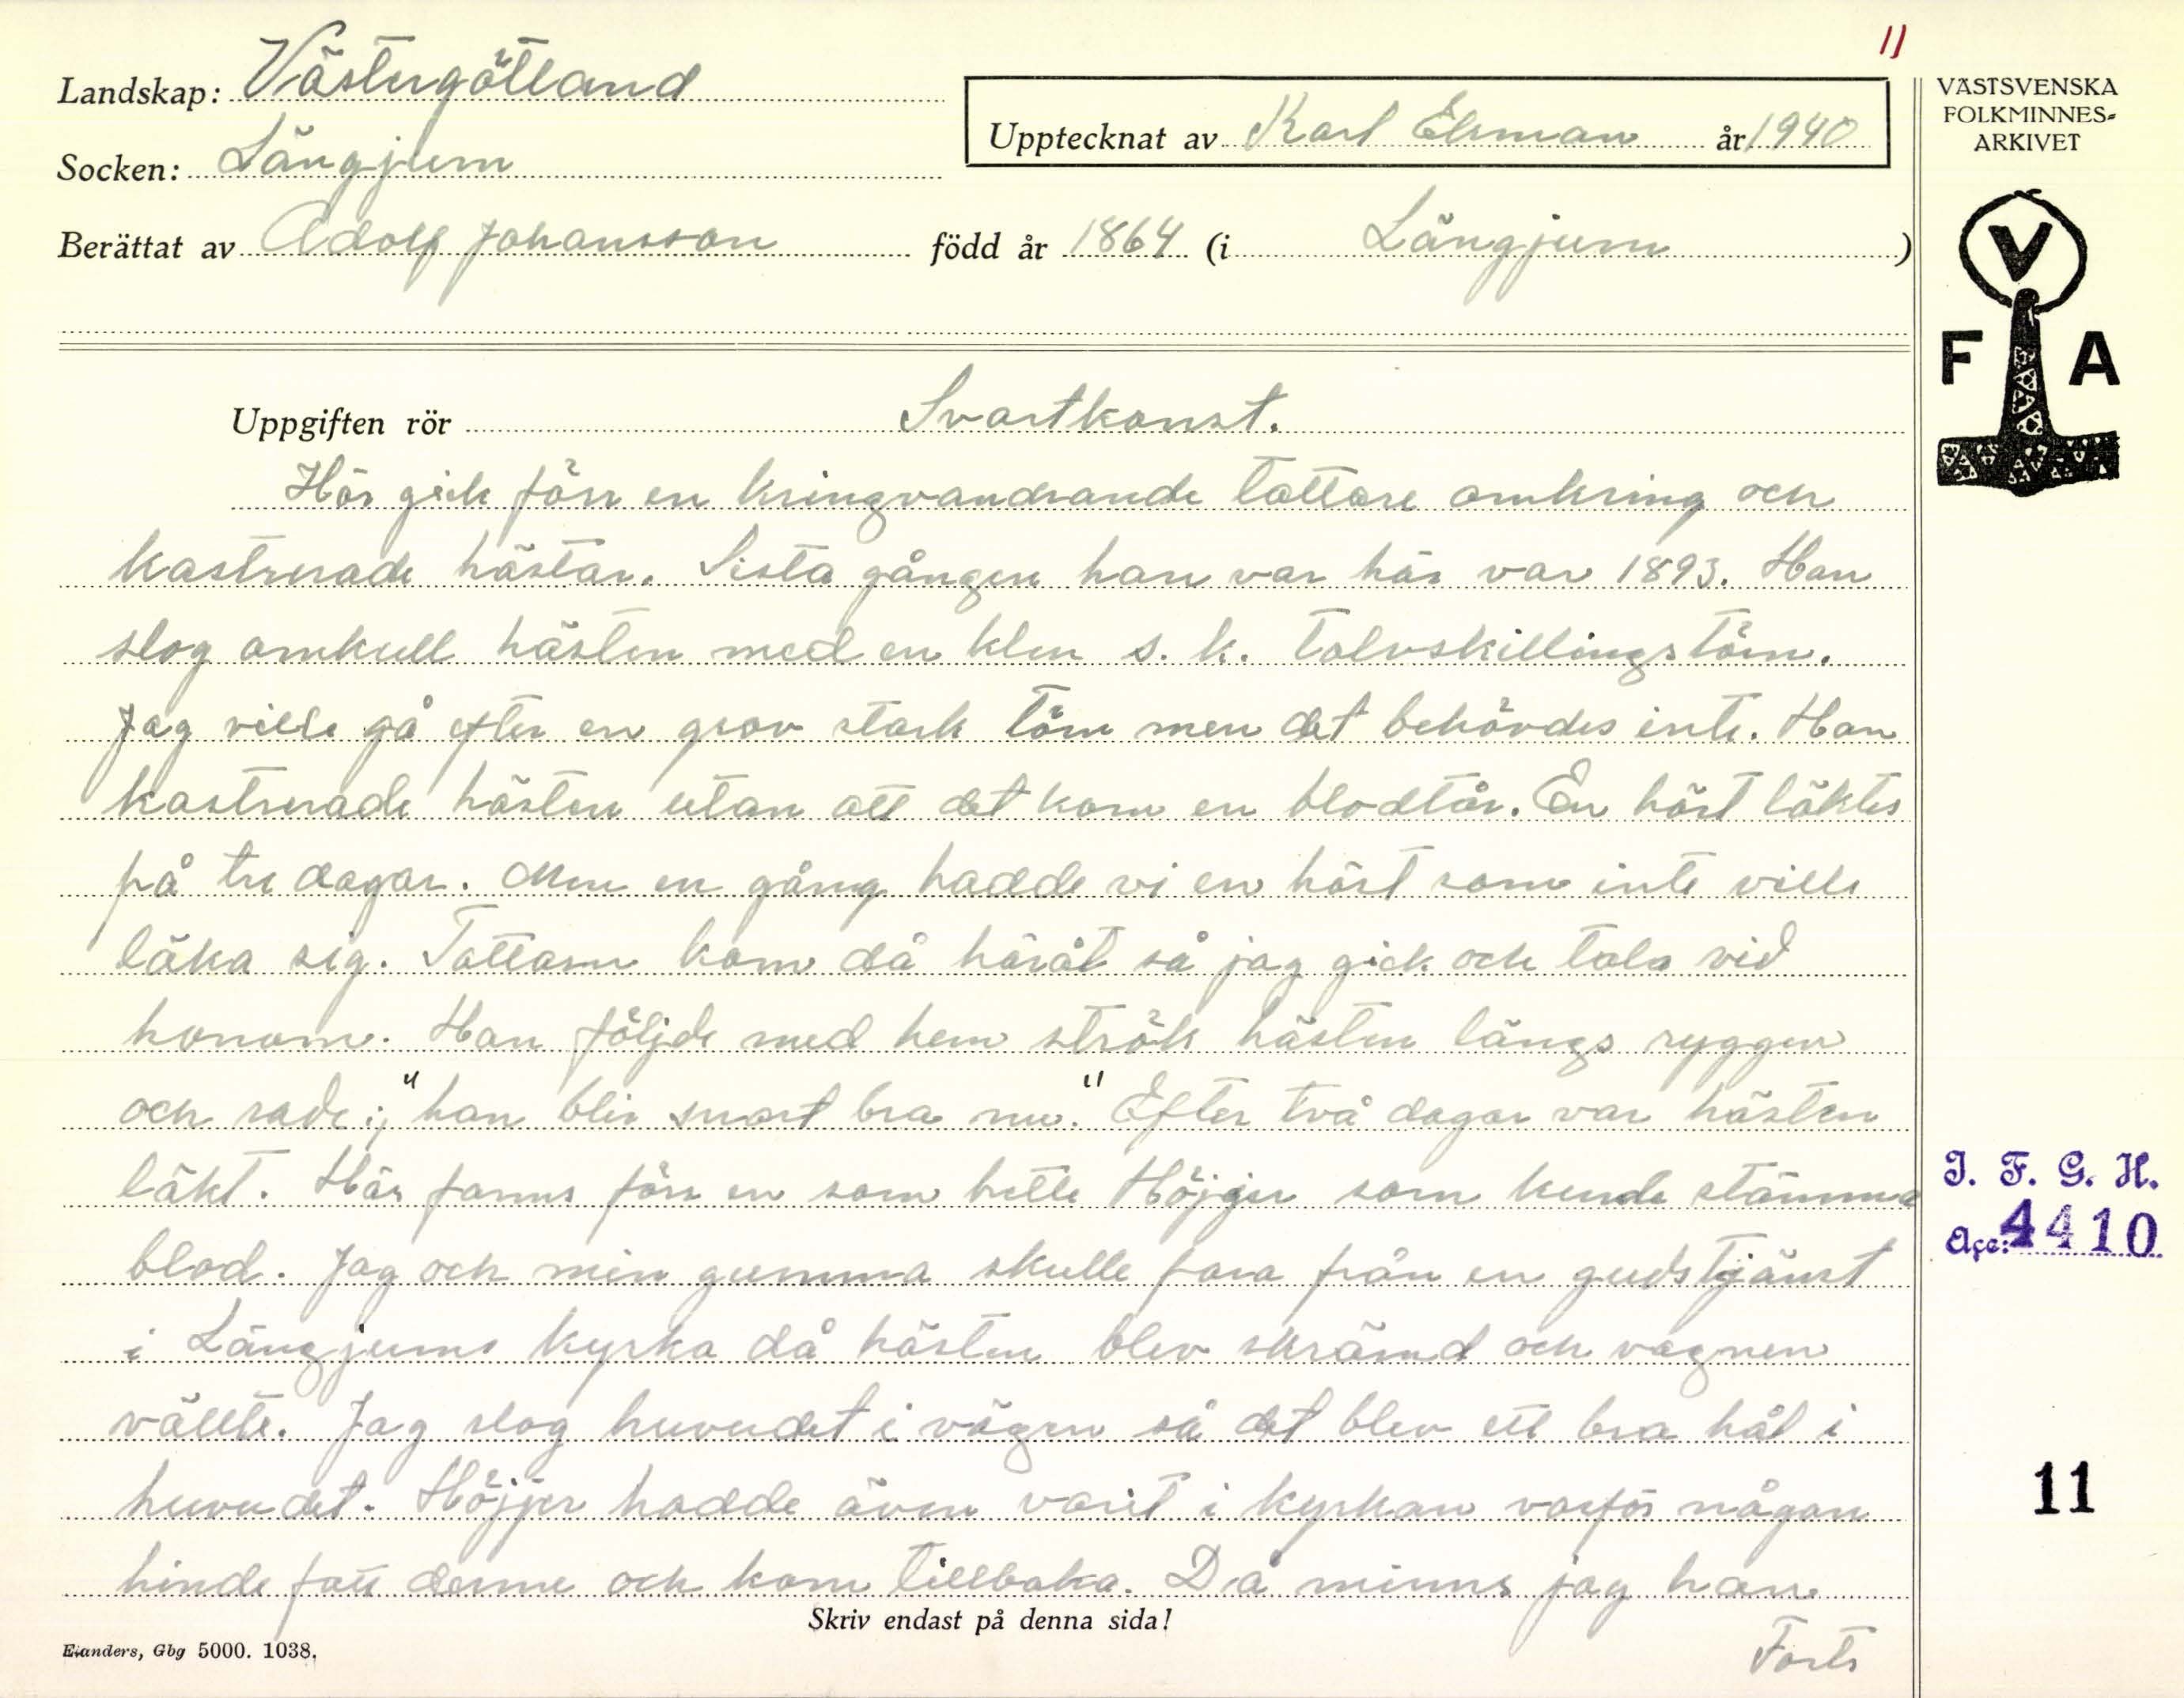 11
Landskap: Västergötland
Upptecknat av Karl Ekman år 1940
Socken: Längjum
Berättat av Adolf Johansson född år 1864 (i Längjum)
VÄSTSVENSKA
FOLKMINNES-
ARKIVET
V
F A
Uppgiften rör Svartkonst.
Här gick förr en kringvandrande tattare omkring och
kastrerade hästar. Sista gången han var här var 1893. Han
slog omkull hästen med en klen s. k. tolvskillingstöm.
Jag ville gå efter en grov stark töm men det behövdes inte. Han
kastrerade hästen utan att det kom en blodtår. En häst läktes
på tre dagar. Men en gång hadde vi en häst som inte ville
läka sig. Tattaren kom då häråt så jag gick och tala vid
honom. Han följde med hem strök hästen längs ryggen
och sade: "han blir snart bra nu." Efter två dagar var hästen
läkt. Här fanns förr en som hette Höjjer som kunde stämma
blod. Jag och min gumma skulle fara från en gudstjänst
i Längjums kyrka då hästen blev skrämd och vagnen
vällte. Jag slog huvudet i vägen så det blev ett bra hål i
huvudet. Höjjer hadde även varit i kyrkan varför någon
hinde fatt denne och kom tillbaka. Då minns jag han
Forts
Skriv endast på denna sida!
Elanders, Gbg 5000. 1038.
I. F. G. H.
Acc: 4410
11